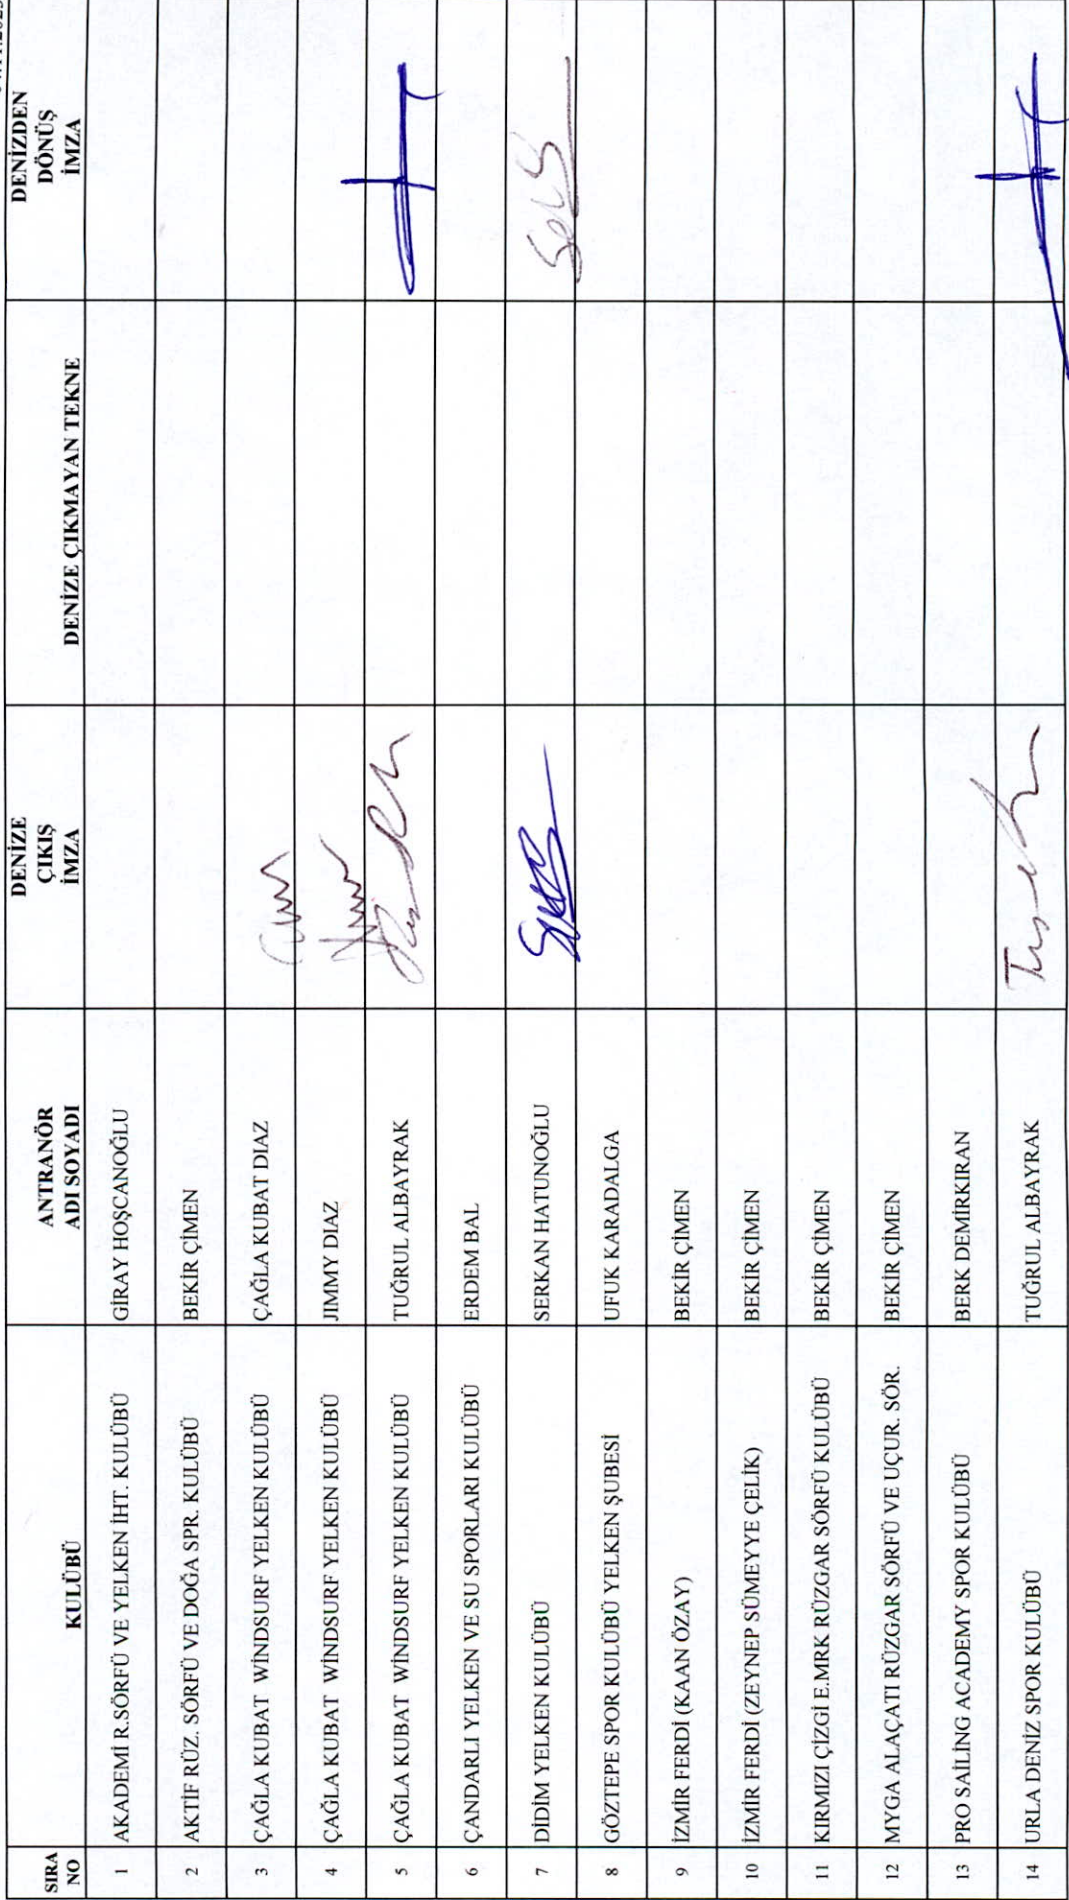 SIRA NO	KULÜBÜ	ANTRANÖR ADI SOYADI	DENİZE ÇIKIŞ İMZA	DENİZE ÇIKMAYAN TEKNE	DENİZDEN DÖNÜŞ İMZA
1	AKADEMİ R.SÖRFÜ VE YELKEN İHT. KULÜBÜ	GİRAY HOŞCANOĞLU
2	AKTİF RÜZ. SÖRFÜ VE DOĞA SPR. KULÜBÜ	BEKİR ÇİMEN
3	ÇAĞLA KUBAT WİNDSURF YELKEN KULÜBÜ	ÇAĞLA KUBAT DIAZ
4	ÇAĞLA KUBAT WİNDSURF YELKEN KULÜBÜ	JIMMY DIAZ
5	ÇAĞLA KUBAT WİNDSURF YELKEN KULÜBÜ	TUĞRUL ALBAYRAK
6	ÇANDARLI YELKEN VE SU SPORLARI KULÜBÜ	ERDEM BAL
7	DİDİM YELKEN KULÜBÜ	SERKAN HATUNOĞLU
8	GÖZTEPE SPOR KULÜBÜ YELKEN ŞUBESİ	UFUK KARADALGA
9	İZMİR FERDİ (KAAN ÖZAY)	BEKİR ÇİMEN
10	İZMİR FERDİ (ZEYNEP SÜMEYYE ÇELİK)	BEKİR ÇİMEN
11	KIRMIZI ÇİZGİ E.MRK RÜZGAR SÖRFÜ KULÜBÜ	BEKİR ÇİMEN
12	MYGA ALAÇATI RÜZGAR SÖRFÜ VE UÇUR. SÖR.	BEKİR ÇİMEN
13	PRO SAİLİNG ACADEMY SPOR KULÜBÜ	BERK DEMİRKIRAN
14	URLA DENİZ SPOR KULÜBÜ	TUĞRUL ALBAYRAK